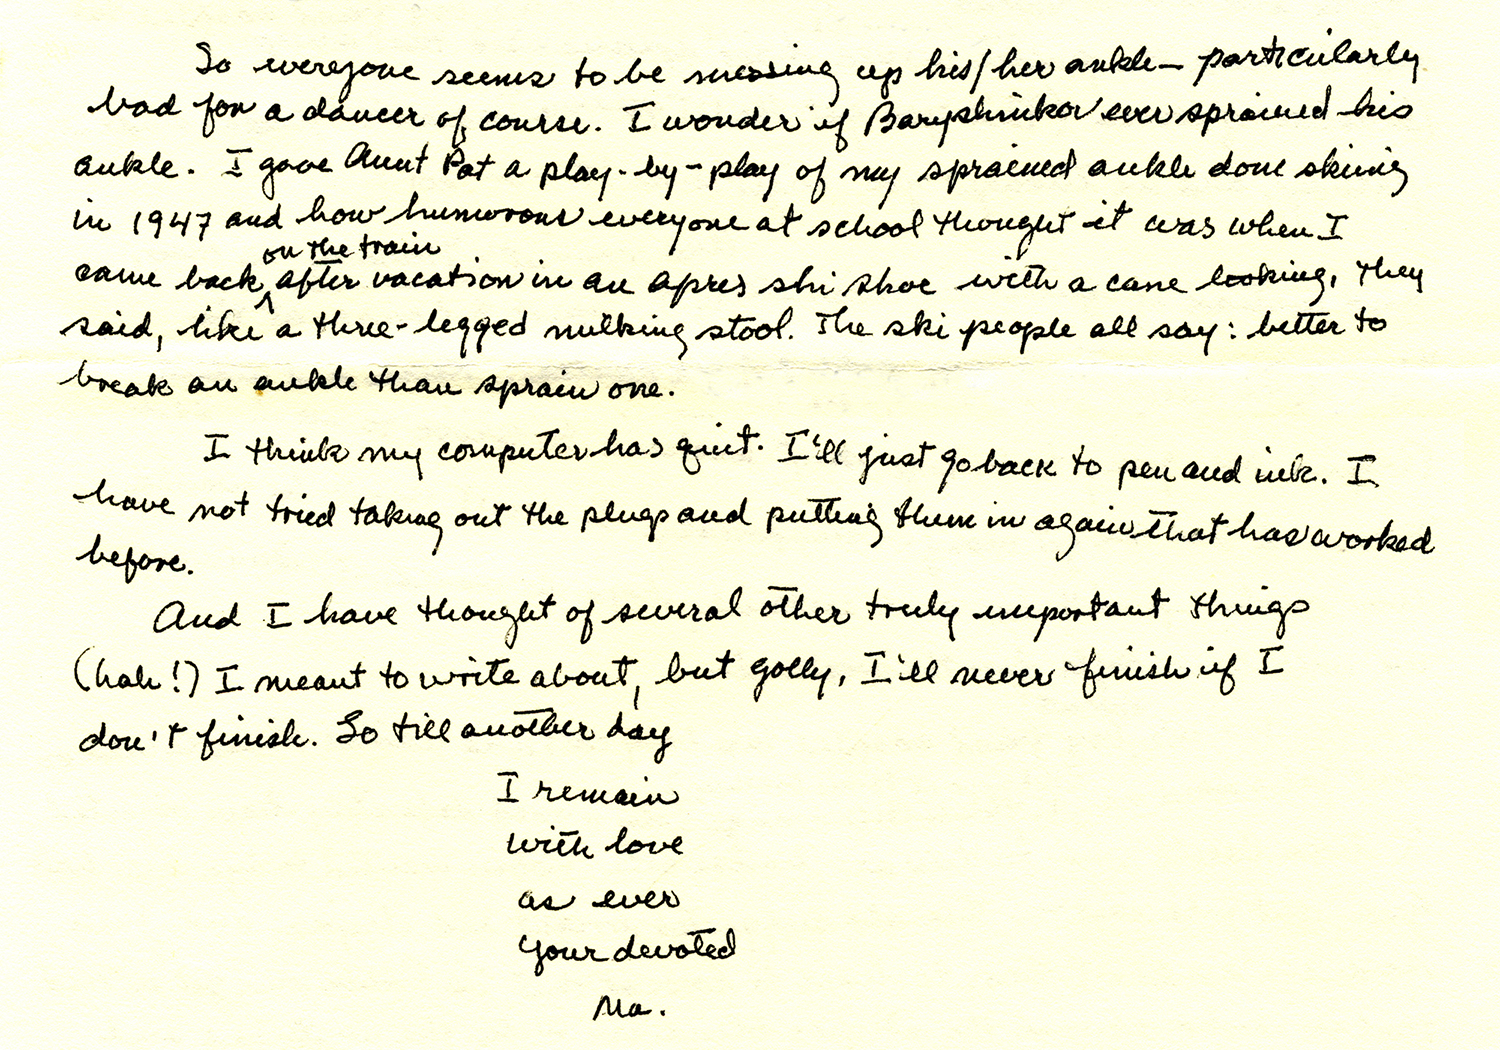 So everyone seems to be messing up his/her ankle — particularly
bad for a dancer of course. I wonder if Baryshnikov ever sprained his
ankle. I gave Aunt Pat a play-by-play of my sprained ankle done skiing
in 1947 and how humorous everyone at school thought it was when I
on the train
came back ^ after vacation in an apres ski shoe with a cane looking, they
said, like a three-legged milking stool. The ski people all say: better to
break an ankle than sprain one.
I think my computer has quit. I'll just go back to pen and ink. I
have not tried taking out the plugs and putting them in again that has worked
before.
And I have thought of several other truly important things
(hah!) I meant to write about, but golly, I'll never finish if I
don't finish. So till another day
I remain
with love
as ever
your devoted
Ma.